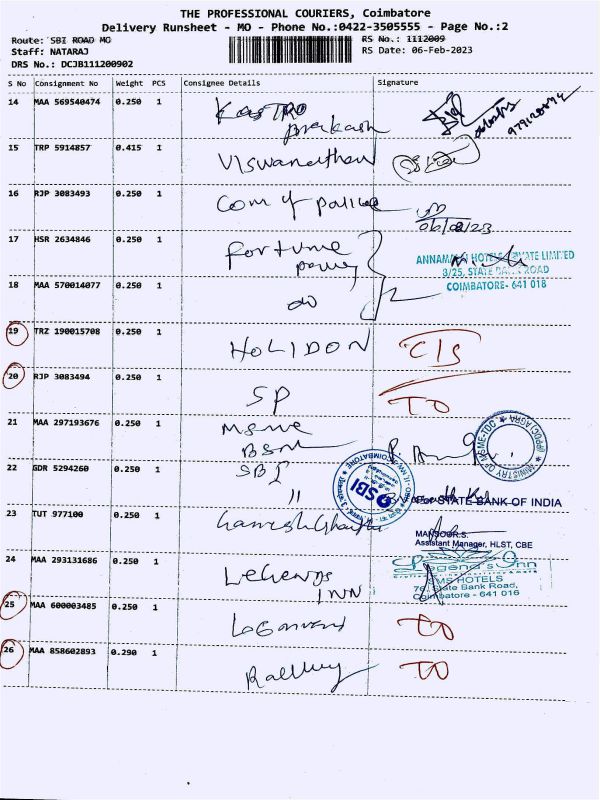 THE PROFESSIONAL COURIERS, Coimbatore
Delivery Runsheet - MO - Phone No.:0422-3505555 - Page No.:2
Route: SBI ROAD MO
RS No.: 1112009
Staff: NATARAJ
RS Date: 06-Feb-2023
DRS No.: DCJB111200902
S No Consignment No Weight PCS Consignee Details Signature
14 MAA 569540474 0.250 1 KASTRO
prakash
15 TRP 5914857 0.415 1 Viswanathan
16 RJP 3083493 0.250 1 Com of police
06/02/23
17 HSR 2634846 0.250 1 Fortune
ANNAMALAI HOTELS PRIVATE LIMITED
8/25, STATE BANK ROAD
COIMBATORE- 641 018
18 MAA 570014077 0.250 1 do
19 TRZ 190015708 0.250 1 HOLIDON C/S
20 RJP 3083494 0.250 1 SP TO
21 MAA 297193676 0.250 1 MSME
BSNL
MINISTRY OF MSME-TDC (PPDC) AGRA
22 GDR 5294260 0.250 1 SBI
"
SBI
For STATE BANK OF INDIA
23 TUT 977100 0.250 1 Ganesh
MANSOOR.S.
Assistant Manager, HLST, CBE
24 MAA 293131686 0.250 1 Legends
INN
Legend's Inn
SMS HOTELS
76, State Bank Road,
Coimbatore - 641 016
25 MAA 600003485 0.250 1 TO
26 MAA 858602893 0.290 1 Railway TO